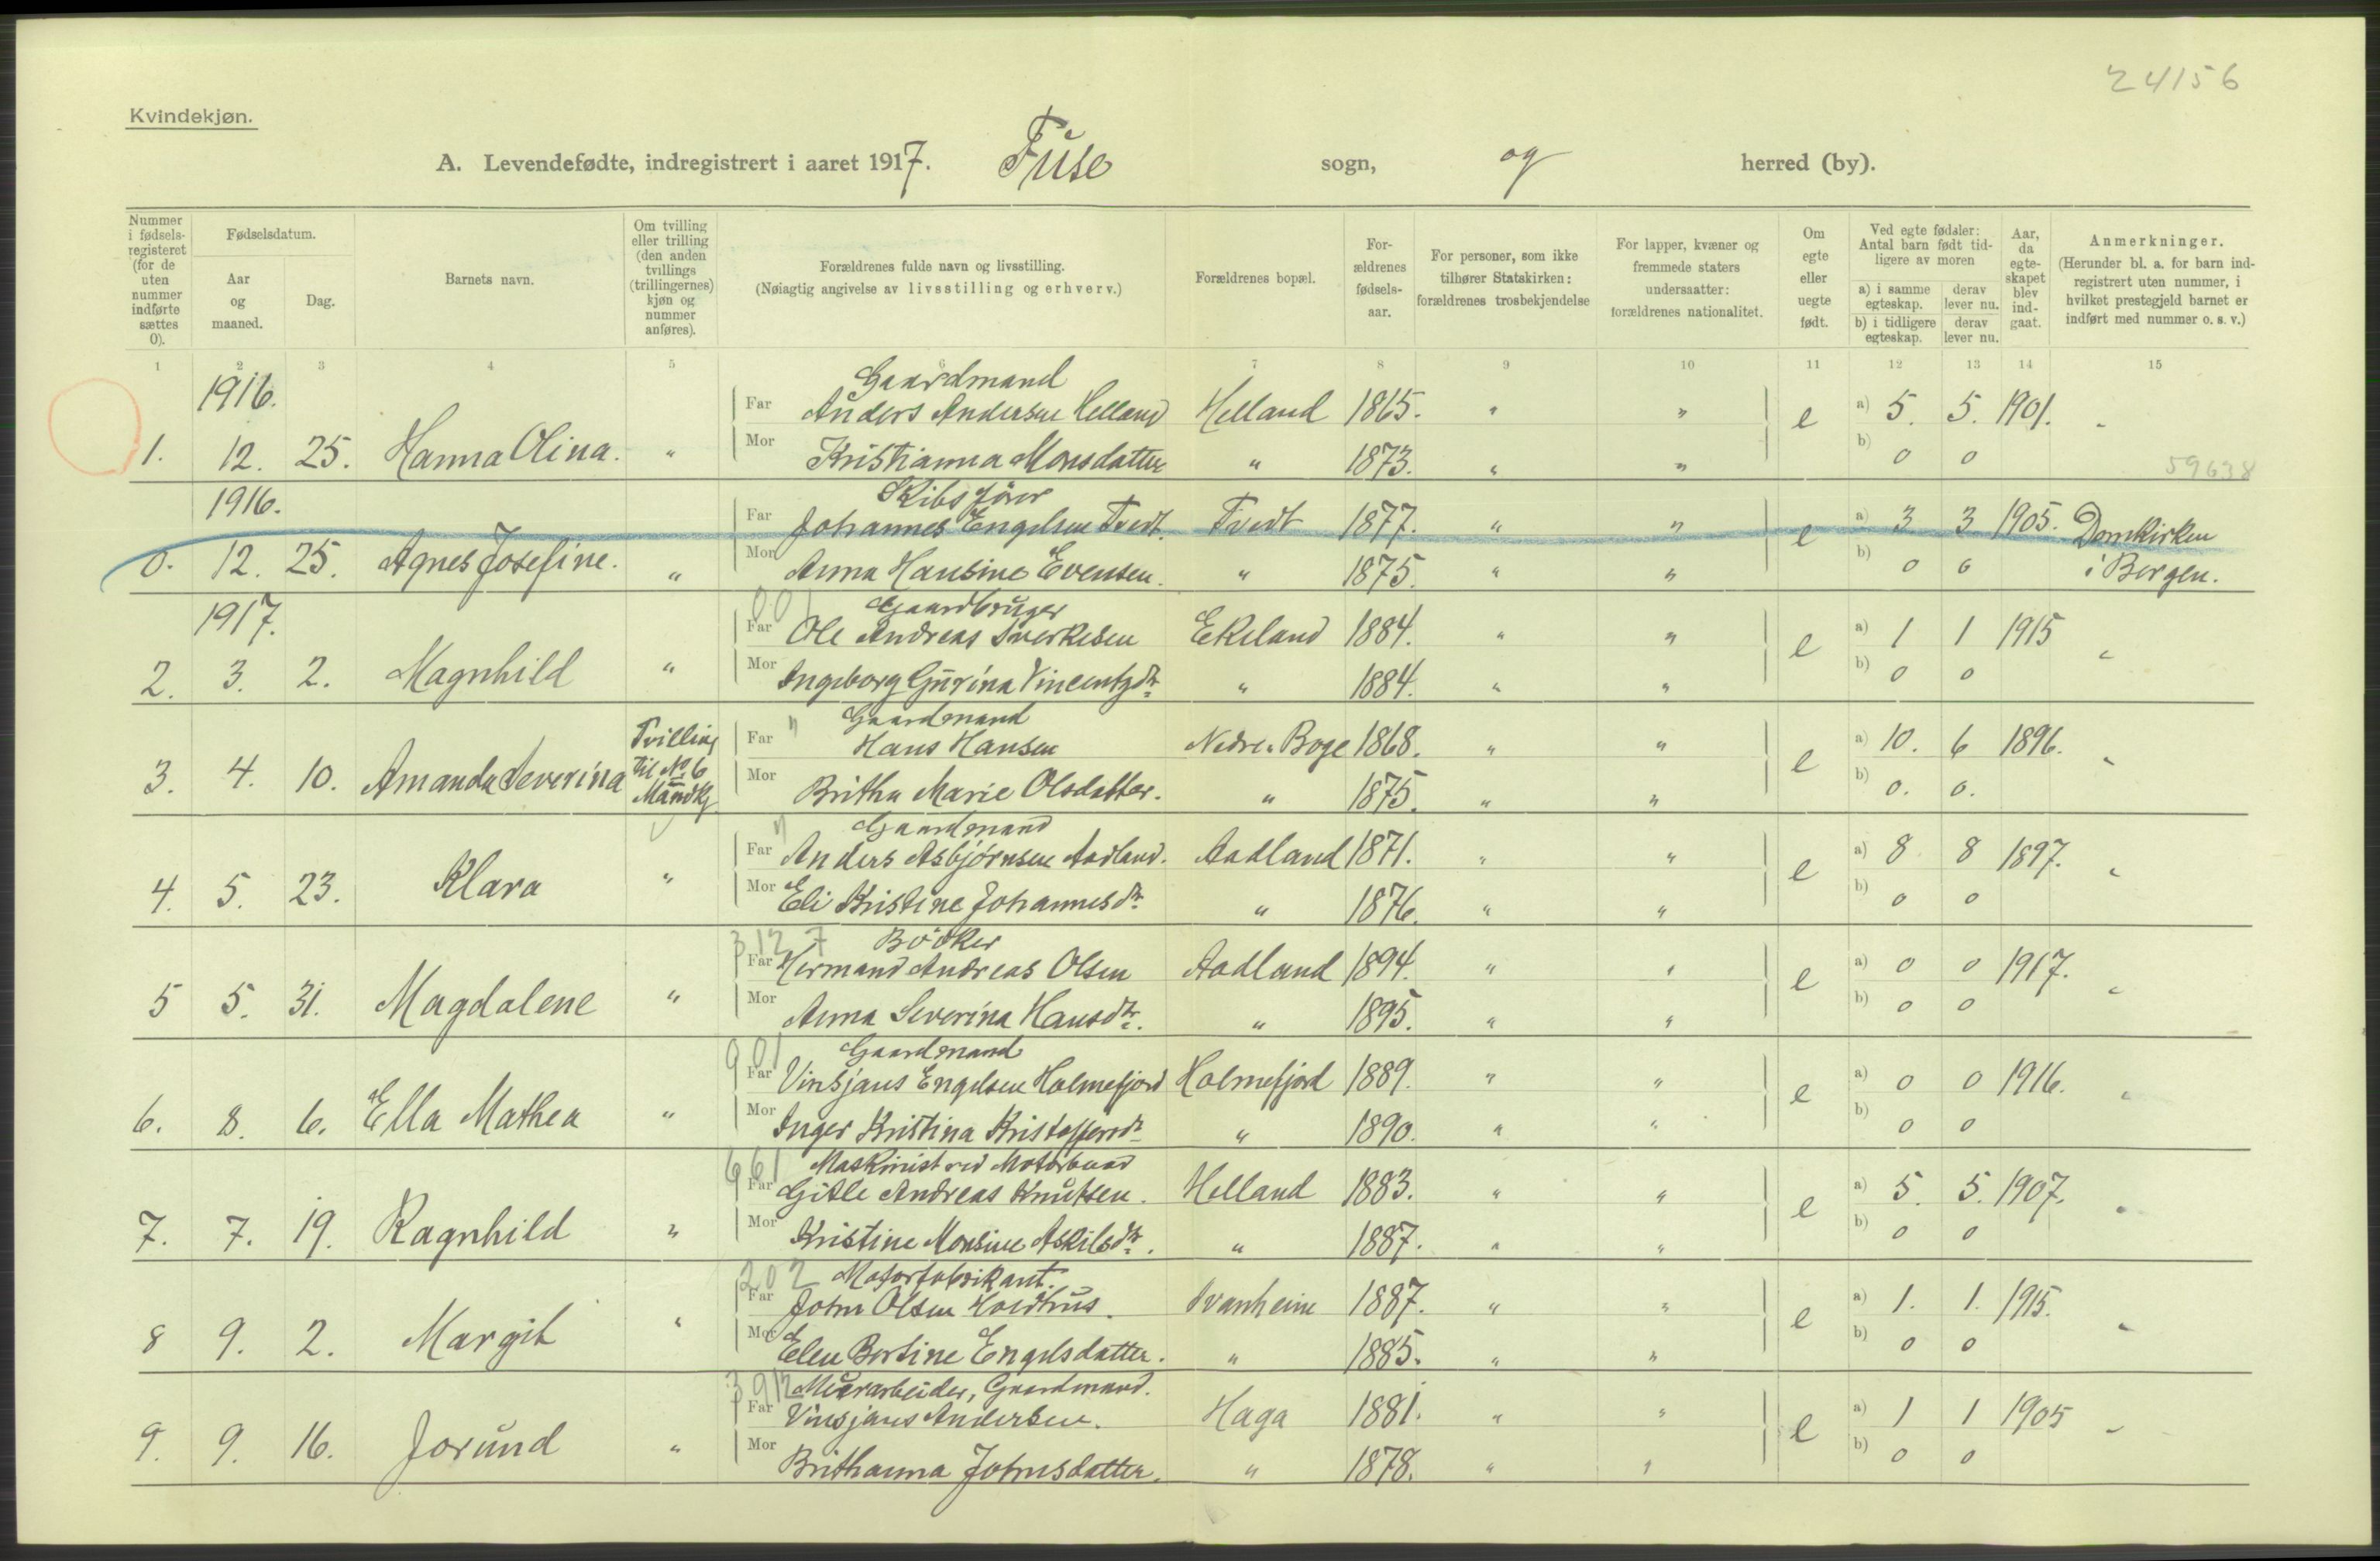 24156
Kvindekjøn.
A. Levendefødte, indregistrert i aaret 1917. Fuse sogn, og herred (by).
Nummer i fødsels-registeret (for de uten nummer indførte sættes 0).
Fødselsdatum.
Aar og maaned.
Dag.
Barnets navn.
Om tvilling eller trilling (den anden tvillings (trillingernes) kjøn og nummer anføres).
Forældrenes fulde navn og livsstilling.
(Nøiagtig angivelse av livsstilling og erhverv.)
Forældrenes bopæl.
For-ældrenes fødsels-aar.
For personer, som ikke tilhører Statskirken: forældrenes trosbekjendelse
For lapper, kvæner og fremmede staters undersaatter: forældrenes nationalitet.
Om egte eller uegte født.
Ved egte fødsler: Antal barn født tid-ligere av moren
a) i samme egteskap. derav lever nu.
b) i tidligere egteskap. derav lever nu.
Aar, da egte-skapet blev ind-gaat.
Anmerkninger.
(Herunder bl. a. for barn ind-registrert uten nummer, i hvilket prestegjeld barnet er indført med nummer o. s. v.)
1 2 3 4 5 6 7 8 9 10 11 12 13 14 15
1916. Gaardmand
Far Anders Andersen Helland Helland 1865. " " e a) 5. 5. 1901. "
1. 12. 25. Hanna Olina. " Mor Kristianna Monsdatter " 1873. " " b) 0 0
59638
1916. Skibsfører
Far Johannes Engelsen Tvedt. Tvedt 1877. " " e a) 3 3 1905. Domkirken
0. 12. 25. Agnes Josefine. " Mor Anna Hansine Evensen. " 1875. " " b) 0 0 i Bergen.
1917. 001 Gaardbruger
Far Ole Andreas Sverkesen Ekeland 1884. " " e a) 1 1 1915 "
2. 3. 2. Magnhild " Mor Ingeborg Gurina Vincentzdtr " 1884. " " b) 0 0
" Gaardmand
Tvilling Far Hans Hansen Nedre Boge 1868. " " e a) 10. 6 1896. "
3. 4. 10. Amanda Severina til No 6 Mandkj. Mor Britha Marie Olsdatter. " 1875. " " b) 0. 0.
" Gaardmand
Far Anders Asbjørnsen Aadland. Aadland 1871. " " e a) 8 8 1897. "
4. 5. 23. Klara " Mor Eli Kristine Johannesdtr. " 1876. " " b) 0 0
312 7 Bødker
Far Hermand Andreas Olsen Aadland 1894. " " e a) 0 0 1917. "
5 5. 31. Magdalene " Mor Anna Severina Hansdtr. " 1895. " " b) 0 0
901 Gaardmand
Far Vinsjans Engelsen Holmefjord Holmefjord 1889. " " e a) 0 0 1916. "
6. 8. 6. Ella Mathea " Mor Inger Kristina Kristoffersdtr " 1890. " " b) 0 0
661 Maskinist ved Motorbaad
Far Gitle Andreas Knutsen. Helland 1883. " " e a) 5. 5. 1907. "
7. 7. 19. Ragnhild " Mor Kristine Monsine Askilsdtr. " 1887. " " b) 0 0
202 Motorfabrikant.
Far John Olsen Hordhus. Svanheim 1887. " " e a) 1. 1. 1915. "
8 9. 2. Margit " Mor Elen Bertine Engelsdatter. " 1885. " " b) 0 0
3912 Murarbeider, Gaardmand.
Far Vinsjans Andersen. Haga 1881. " " e a) 1 1 1905 "
9. 9. 16. Jorund " Mor Brithanna Johnsdatter. " 1878. " " b) 0 0